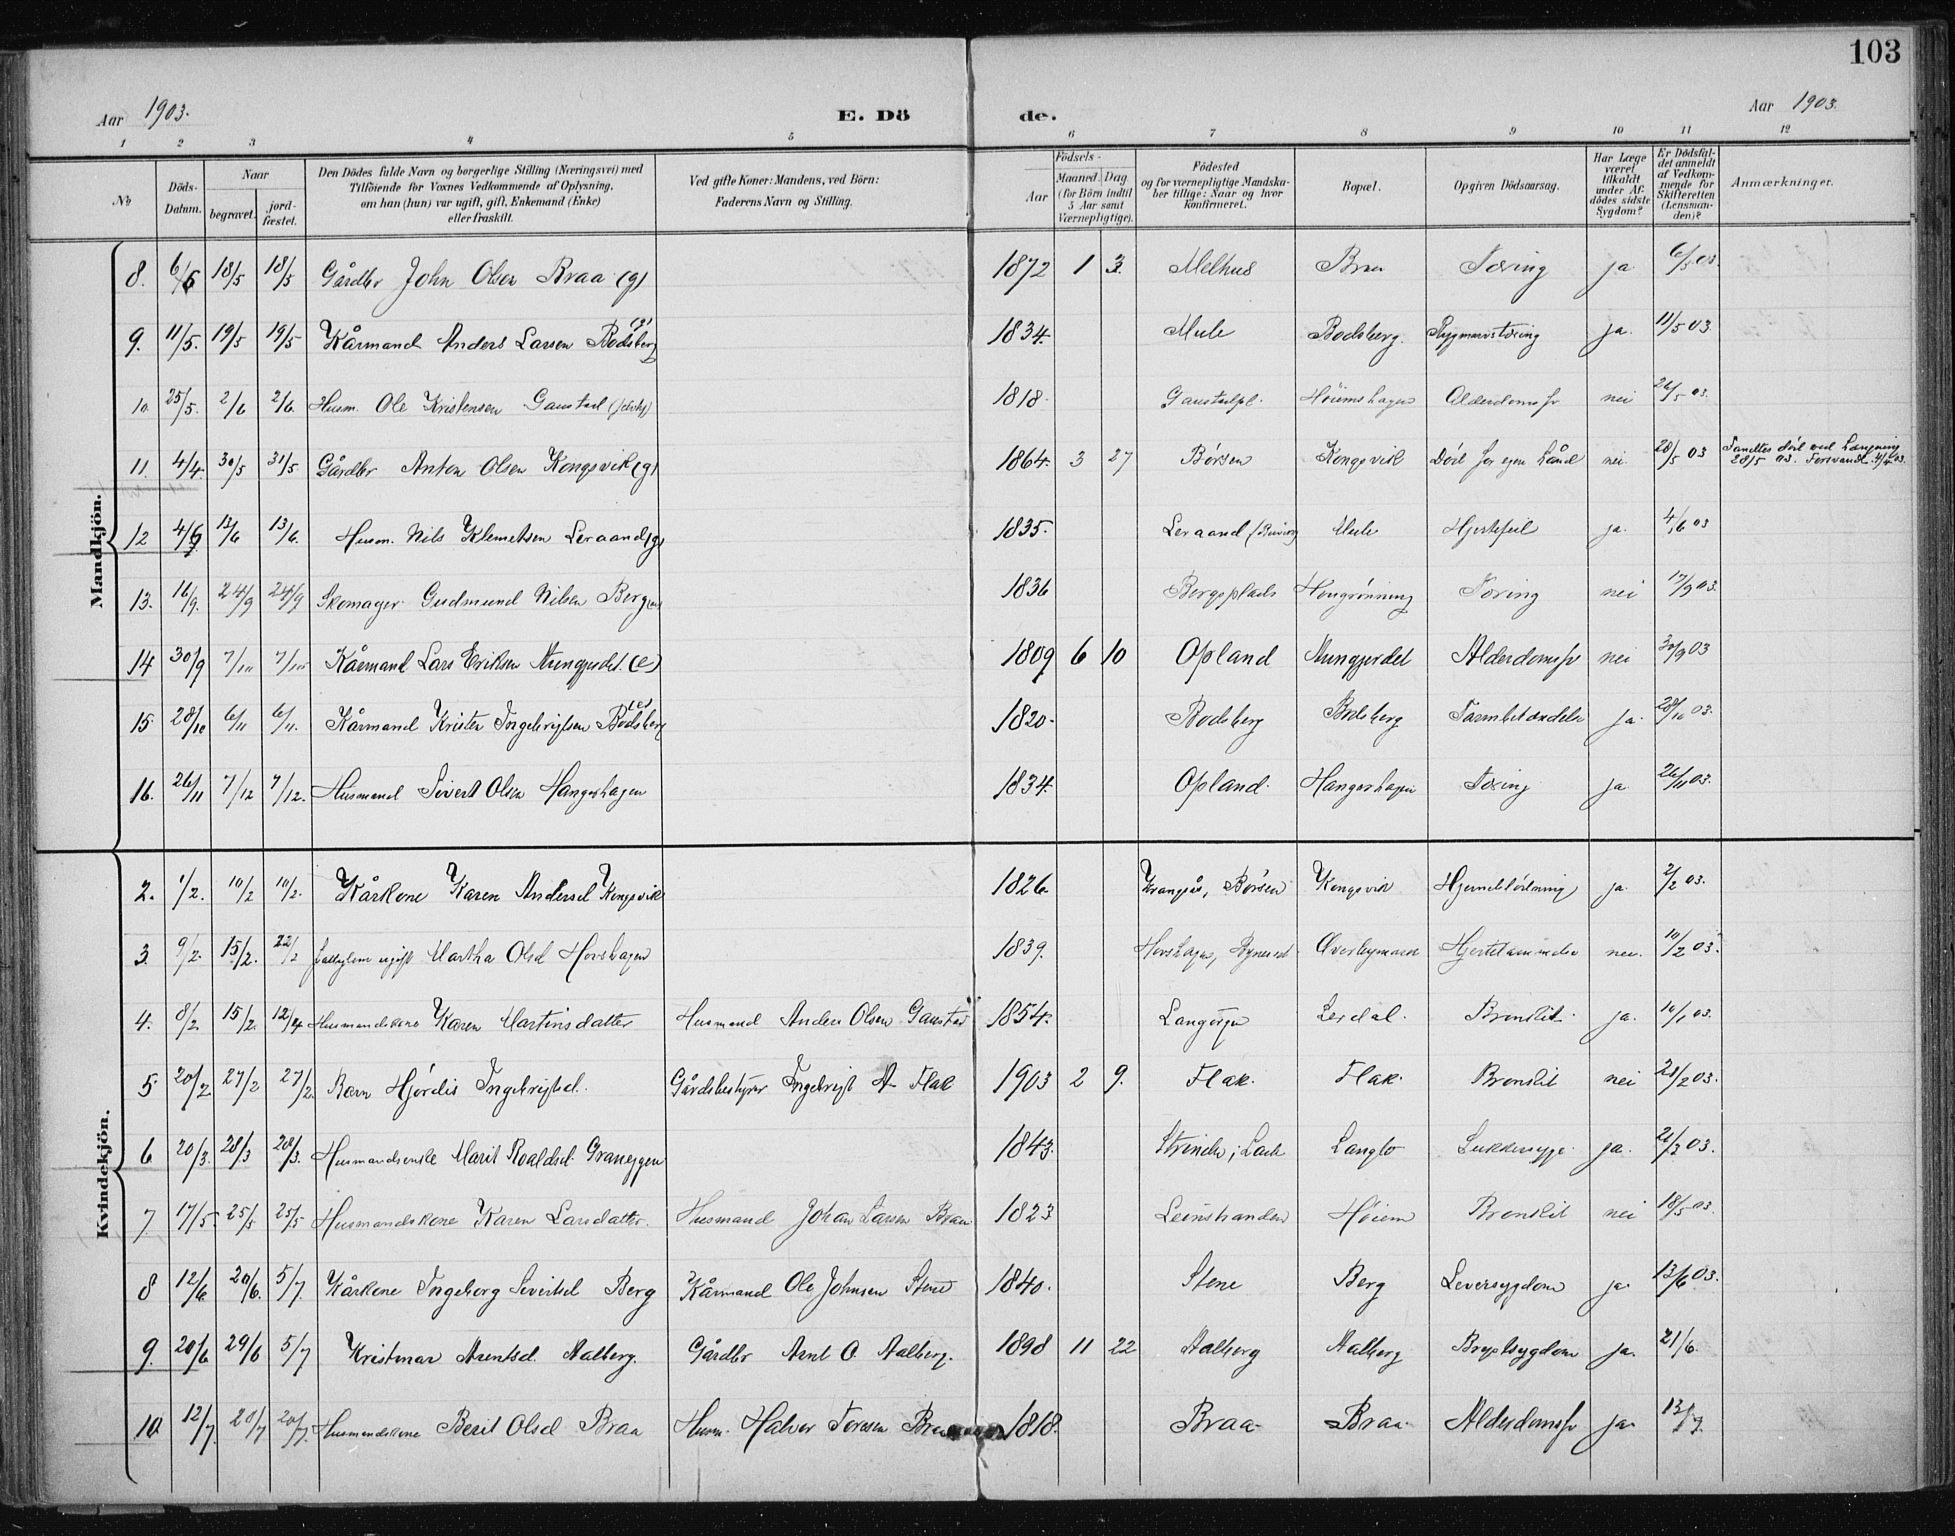 103
Aar 1903.
E. Döde.
Aar 1903.
1 2 3 4 5 6 7 8 9 10 11 12
No
Döds-Datum.
Naar
begravet.
jord-fæstet.
Den Dödes fulde Navn og borgerlige Stilling (Næringsvei) med
Tilföiende for Voxnes Vedkommende af Oplysning,
om han (hun) var ugift, gift, Enkemand (Enke)
eller fraskilt.
Ved gifte Koner: Mandens, ved Börn:
Faderens Navn og Stilling.
Födsels-
Aar
Maaned. Dag.
(for Börn indtil
5 Aar samt
Værnepligtige).
Födested
og for værnepligtige Mandska-
ber tillige: Naar og hvor
konfirmeret.
Bopæl.
Opgiven Dödsaarsag.
Har Læge
været
tilkaldt
under Af-
dödes sidste
Sygdom?
Er Dödsfal-
det anmeldt
af Vedkom-
mende for
Skifteretten
(Lensman-
den)?
Anmærkninger.
Mandkjön.
8. 6/5 18/5 18/5 Gårdbr John Olsen Braa (g) 1872 1 3. Melhus Braa Tæring ja 6/5 03.
9. 11/5. 19/5 19/5 Kårmand Anders Larsen Bodsberg (g) 1834. Mule Bodsberg. Rygmarvstæring ja. 11/5 03.
10. 25/5. 2/6 2/6. Husm. Ole Kristensen Gaustad 1818. Gaustadpl. Høiemshagen Alderdomssv nei 26/5 03.
11. 4/4. 30/5 31/5 Gårdbr Anton Olsen Kongsvik (g) 1864. 3 27 Børsen Kongsvik Död for egen hånd nei. 28/5 03 Fandtes död ved Langning 28/5 03. Forsvandt 4/4 03.
12 4/6 13/6 13/6. Husm. Nils Klemetsen Leraand (g) 1835. Leraand Mule Hjertefeil ja. 4/6 03
13. 16/9. 24/9 24/9 Skomager Gudmund Nilsen Berg 1836 Bergsplads Hongrønning Tæring nei 17/9 03.
14 30/9 7/10 7/10 Kårmand Lars Eriksen Nungjerdet. (e) 1809 6 10 Opland Nungjerdet Alderdomssv nei 30/9 03
15 28/10 6/11 6/11. Kårmand Krister Ingebrigtsen Bodsberg (e) 1820. Bodsberg Bodsberg Tarmbetændelse ja. 28/10 03.
16. 26/11 7/12 7/12. Husmand Sivert Olsen Hangershagen 1834. Opland. Hangershagen Tæring ja 26/11 03.
Kvindekjön.
2. 1/2. 10/2 10/2. Kårkone Karen Andersd. Kongsvik 1826 Krangsås, Børsen Kongsvik Hjerneblødning ja. 2/2 03.
3. 9/2. 15/2. 22/2 fattiglem ugift Martha Olsd Hovshagen 1839. Hovshagen, Bynesset Overbymarck nei. 10/2 03.
4. 8/2 15/2. 12/4. Husmandskone Karen Martinsdatter Husmand Anders Olsen Gaustad 1854. Langørgen Lerdal. Bronkit. ja. 10/1 03.
5 20/2 27/2 27/2. Barn Hjördis Ingebrigtsd. Gårdsbestyrer Ingebrigt A. Flak 1903 2 9. Flak. Flak. Bronkit nei 28/2 03.
6 20/3. 28/3 28/3. Husmandsenke Marit Roaldsd. Graneggen 1843. Strinden, Lade Langlo Sukkersyge. ja. 21/3 03.
7. 17/5. 25/5 25/5 Husmandskone Karen Larsdatter. Husmand Johan Larsen Braa 1823 Leinstranden Høiem Bronkit nei 18/5 03.
8 12/6. 20/6. 5/7. Kårkone Ingeborg Sivertsd Berg Kårmand Ole Johnsen Stene 1840. Stene Berg Leversygdom ja. 13/6 03.
9. 20/6 29/6 5/7 Kristmar Arentsd. Aalberg. Gårdbr Arnt O Aalberg. 1898 11 22 Aalberg Aalberg Brystsygdom ja. 21/6.
10. 12/7. 20/7 20/7. Husmandskone Berit Olsd Braa Husm. Halvor Toresen Braa 1818. Braa Braa Alderdomssv ja. 13/7.